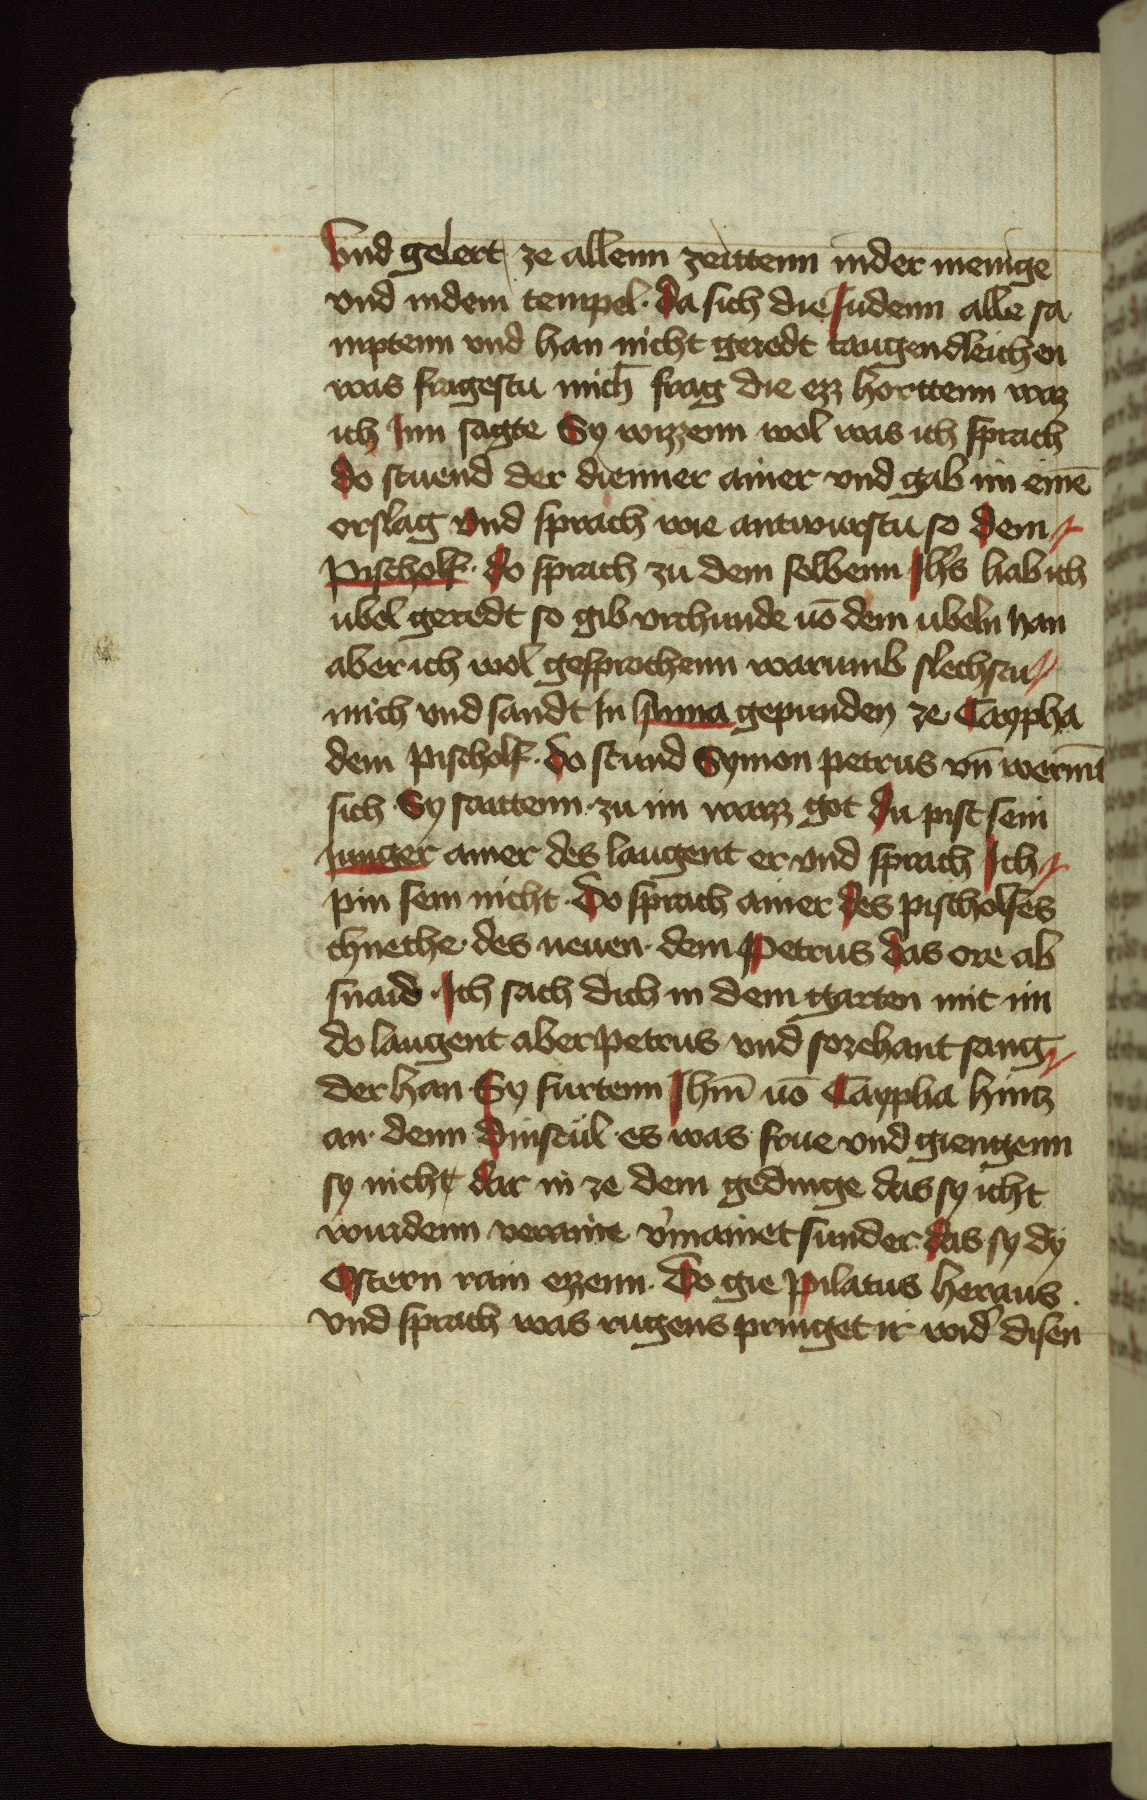 Vnd gelert ze allenn zeittenn inder menige
vnd indem tempel · da sich die Judenn alle sa
mptenn vnd han nicht geredt taugendleichen
was fragestu mich frag die ezz horttenn waz
ich Inn sagte Sy wizzenn wol was ich sprach
do stuend der dienner ainer vnd gab im einē
orslag vnd sprach wie antwurstu so dem
Pischolf · do sprach zu dem selbenn Jhs hab ich
ubel geredt so gib vrchunde uō dem ubeln han
aber ich wol gesprochenn warumb slechstu
mich vnd sandt In Anna gepunden ze Caypha
dem pischolf · do stund Symon petrus vn̄ wermt
sich · Sy saittenn · zu im warzz got du pist sein
Junger ainer des laugent er vnd sprach Ich
pin sein nicht · Do sprach ainer des pischolfes
chnethe · des neuen · dem Petrus das ore ab
snaid · Ich sach dich in dem garten mit im
do laugent aber petrus vnd sozehant sang
der han · Sy furtenn Jhm̄ uō Caypha hintz
an · denn dinstul · es was frue vnd giengenn
sy nicht dar in ze dem gedinge das sy icht
wurdenn veraine v̓mainet sunder das sy dy
Ostern rain ezzenn · Do gie pilatus heraus
vnd sprach was rugens pringet ir wid̓ disen